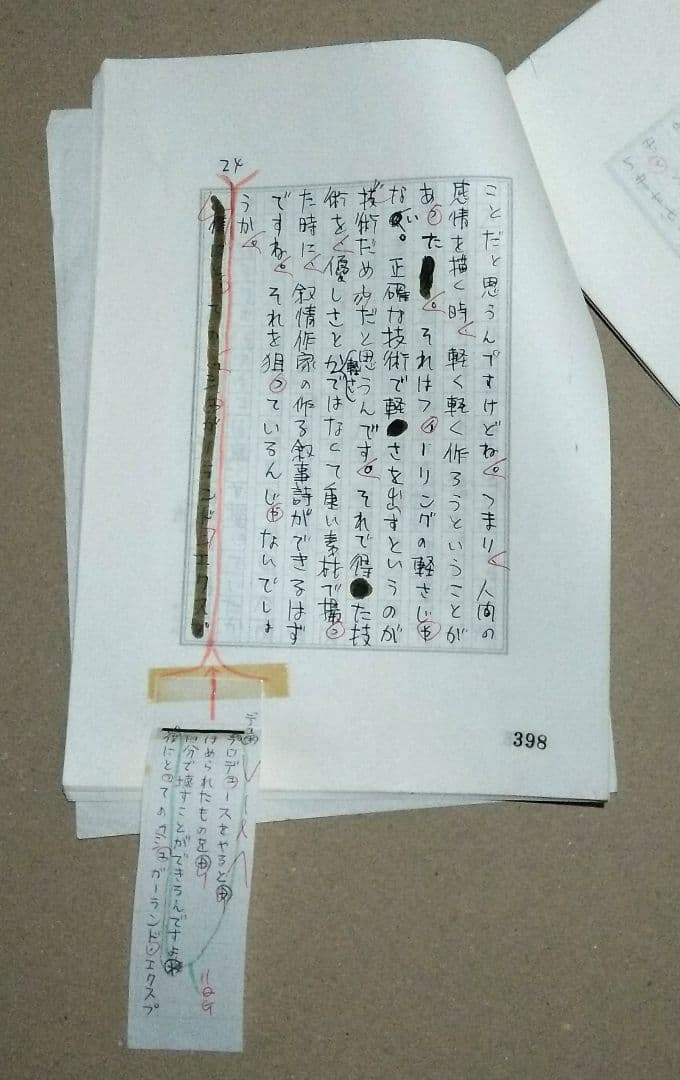 24
ことだと思うんですけどね。つまり、人間の
感情を描く時、軽く軽く作ろうということが
あった。それはフィーリングの軽さじゃ
ない。正確な技術で軽さを出すというのが
技術だめ だと思うんです。それで得た技
術を、優しさとか軽さとかではなくて重い素材で撮っ
た時に、叙情作家の作る叙事詩ができるはず
ですね。それを狙っているんじゃないでしょ
うか。
398
ほめられたものを
自分で壊すことができうんですよね
にとってのサシュガーランド・エクスプ